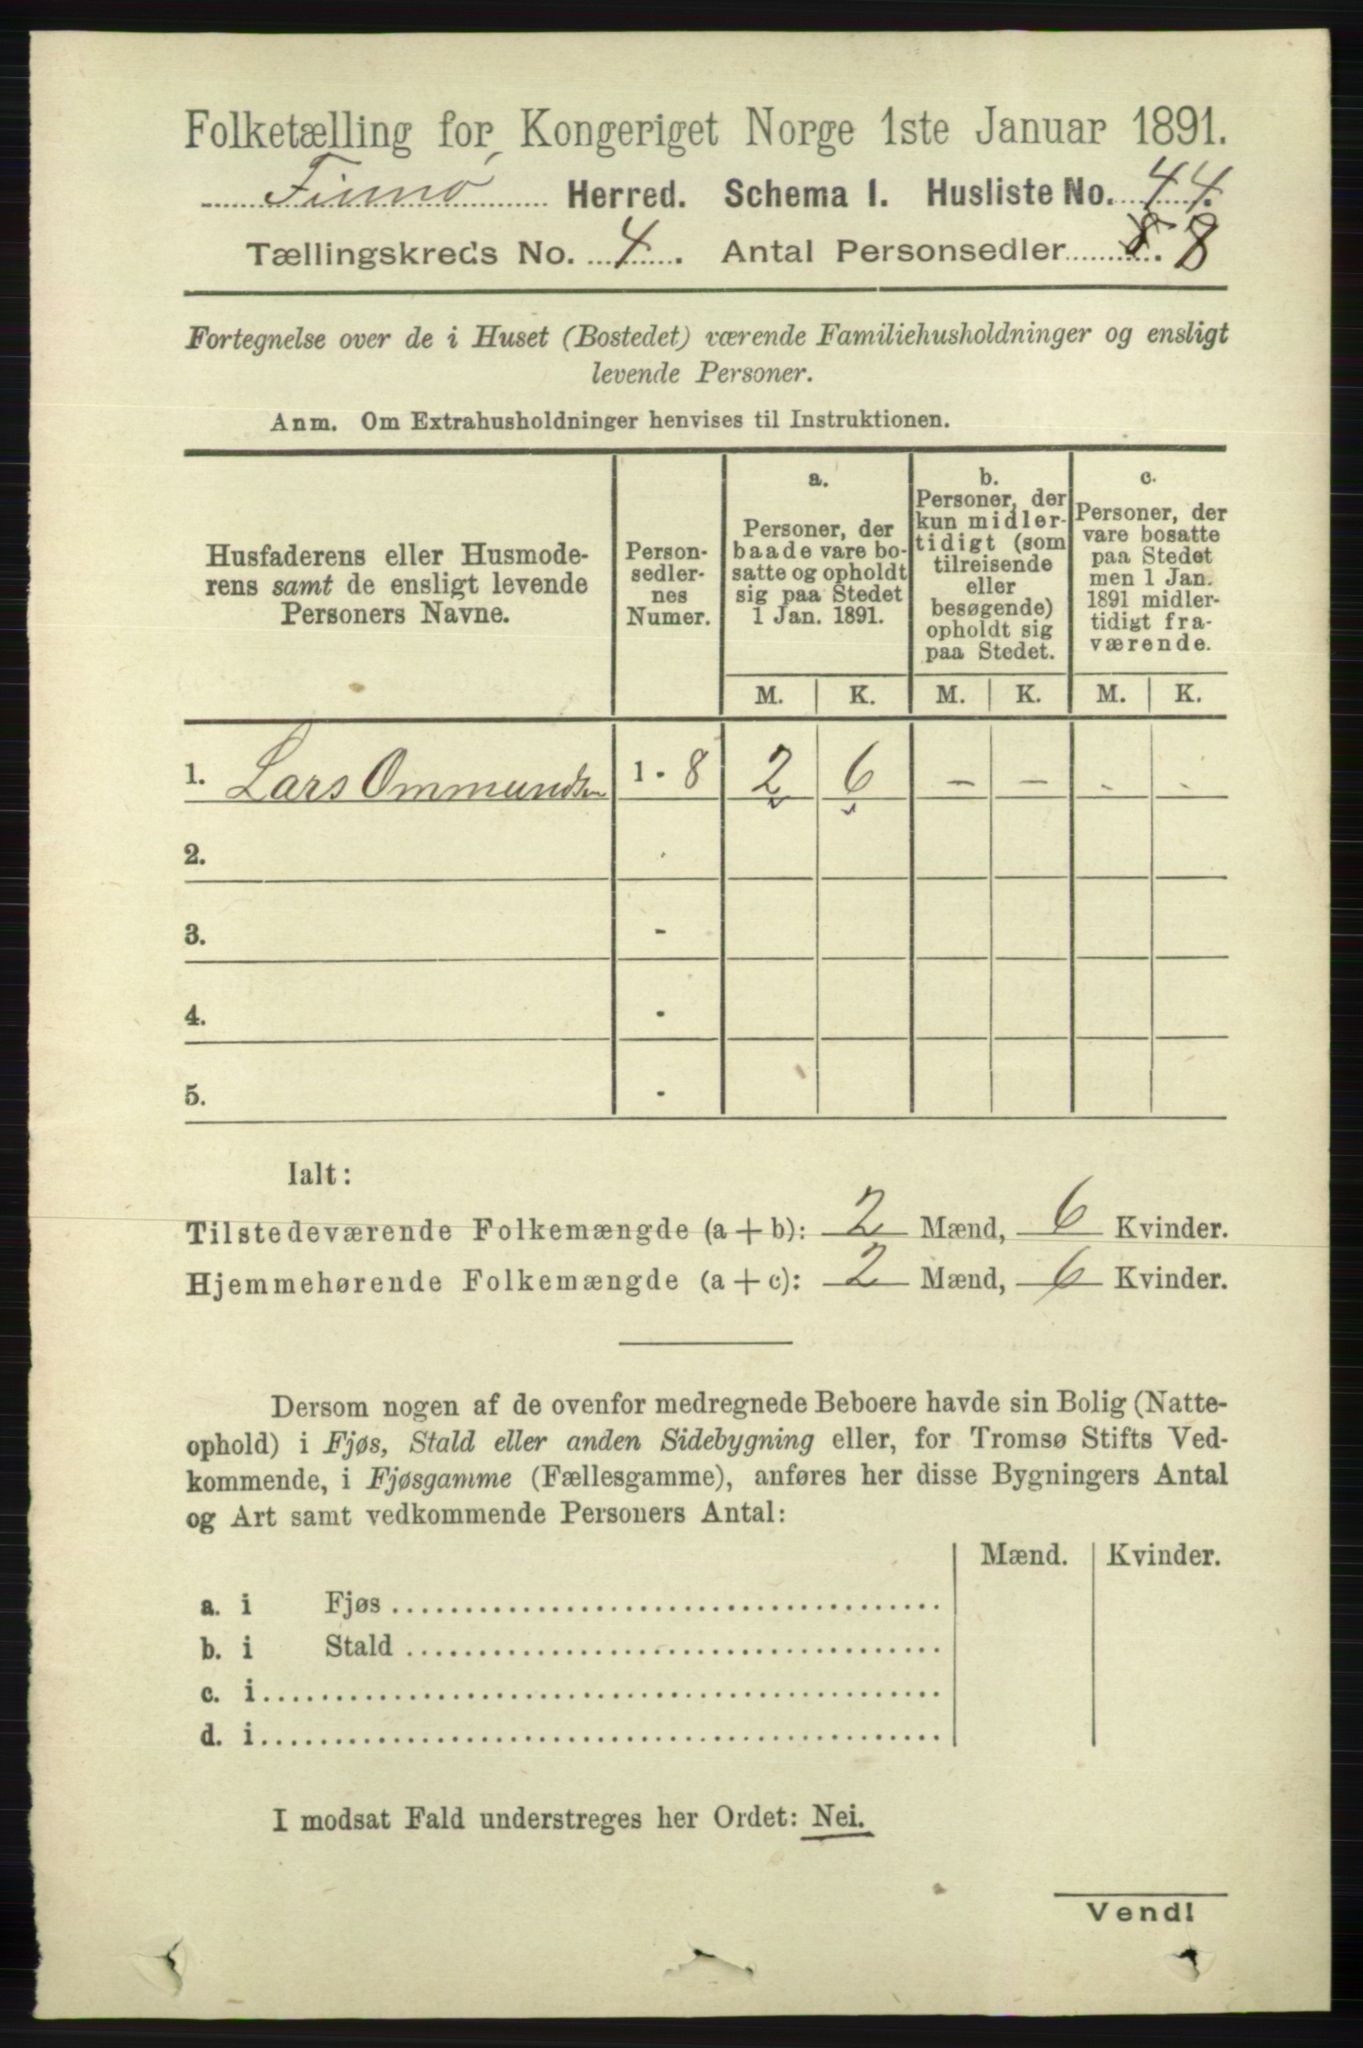 Folketælling for Kongeriget Norge 1ste Januar 1891.
Finnø Herred. Schema 1. Husliste No. 44.
Tællingskreds No. 4. Antal Personsedler 8. 8
Fortegnelse over de i Huset (Bostedet) værende Familiehusholdninger og ensligt
levende Personer.
Anm. Om Extrahusholdninger henvises til Instruktionen.
Husfaderens eller Husmode-
rens samt de ensligt levende
Personers Navne.
Person-
sedler-
nes
Numer.
a.
Personer, der
baade vare bo-
satte og opholdt
sig paa Stedet
1 Jan. 1891.
b.
Personer, der
kun midler-
tidigt (som
tilreisende
eller
besøgende)
opholdt sig
paa Stedet.
c.
Personer, der
vare bosatte
paa Stedet
men 1 Jan.
1891 midler-
tidigt fra-
værende.
M. K. M. K. M. K.
1. Lars Ommundsen 1 - 8 2 6 - - - -
2.
3. -
4. -
5. -
Ialt:
Tilstedeværende Folkemængde (a + b): 2 Mænd, 6 Kvinder.
Hjemmehørende Folkemængde (a + c): 2 Mænd, 6 Kvinder.
Dersom nogen af de ovenfor medregnede Beboere havde sin Bolig (Natte-
ophold) i Fjøs, Stald eller anden Sidebygning eller, for Tromsø Stifts Ved-
kommende, i Fjøsgamme (Fællesgamme), anføres her disse Bygningers Antal
og Art samt vedkommende Personers Antal:
Mænd. Kvinder.
a. i Fjøs
b. i Stald
c. i
d. i
I modsat Fald understreges her Ordet: Nei.
Vend!